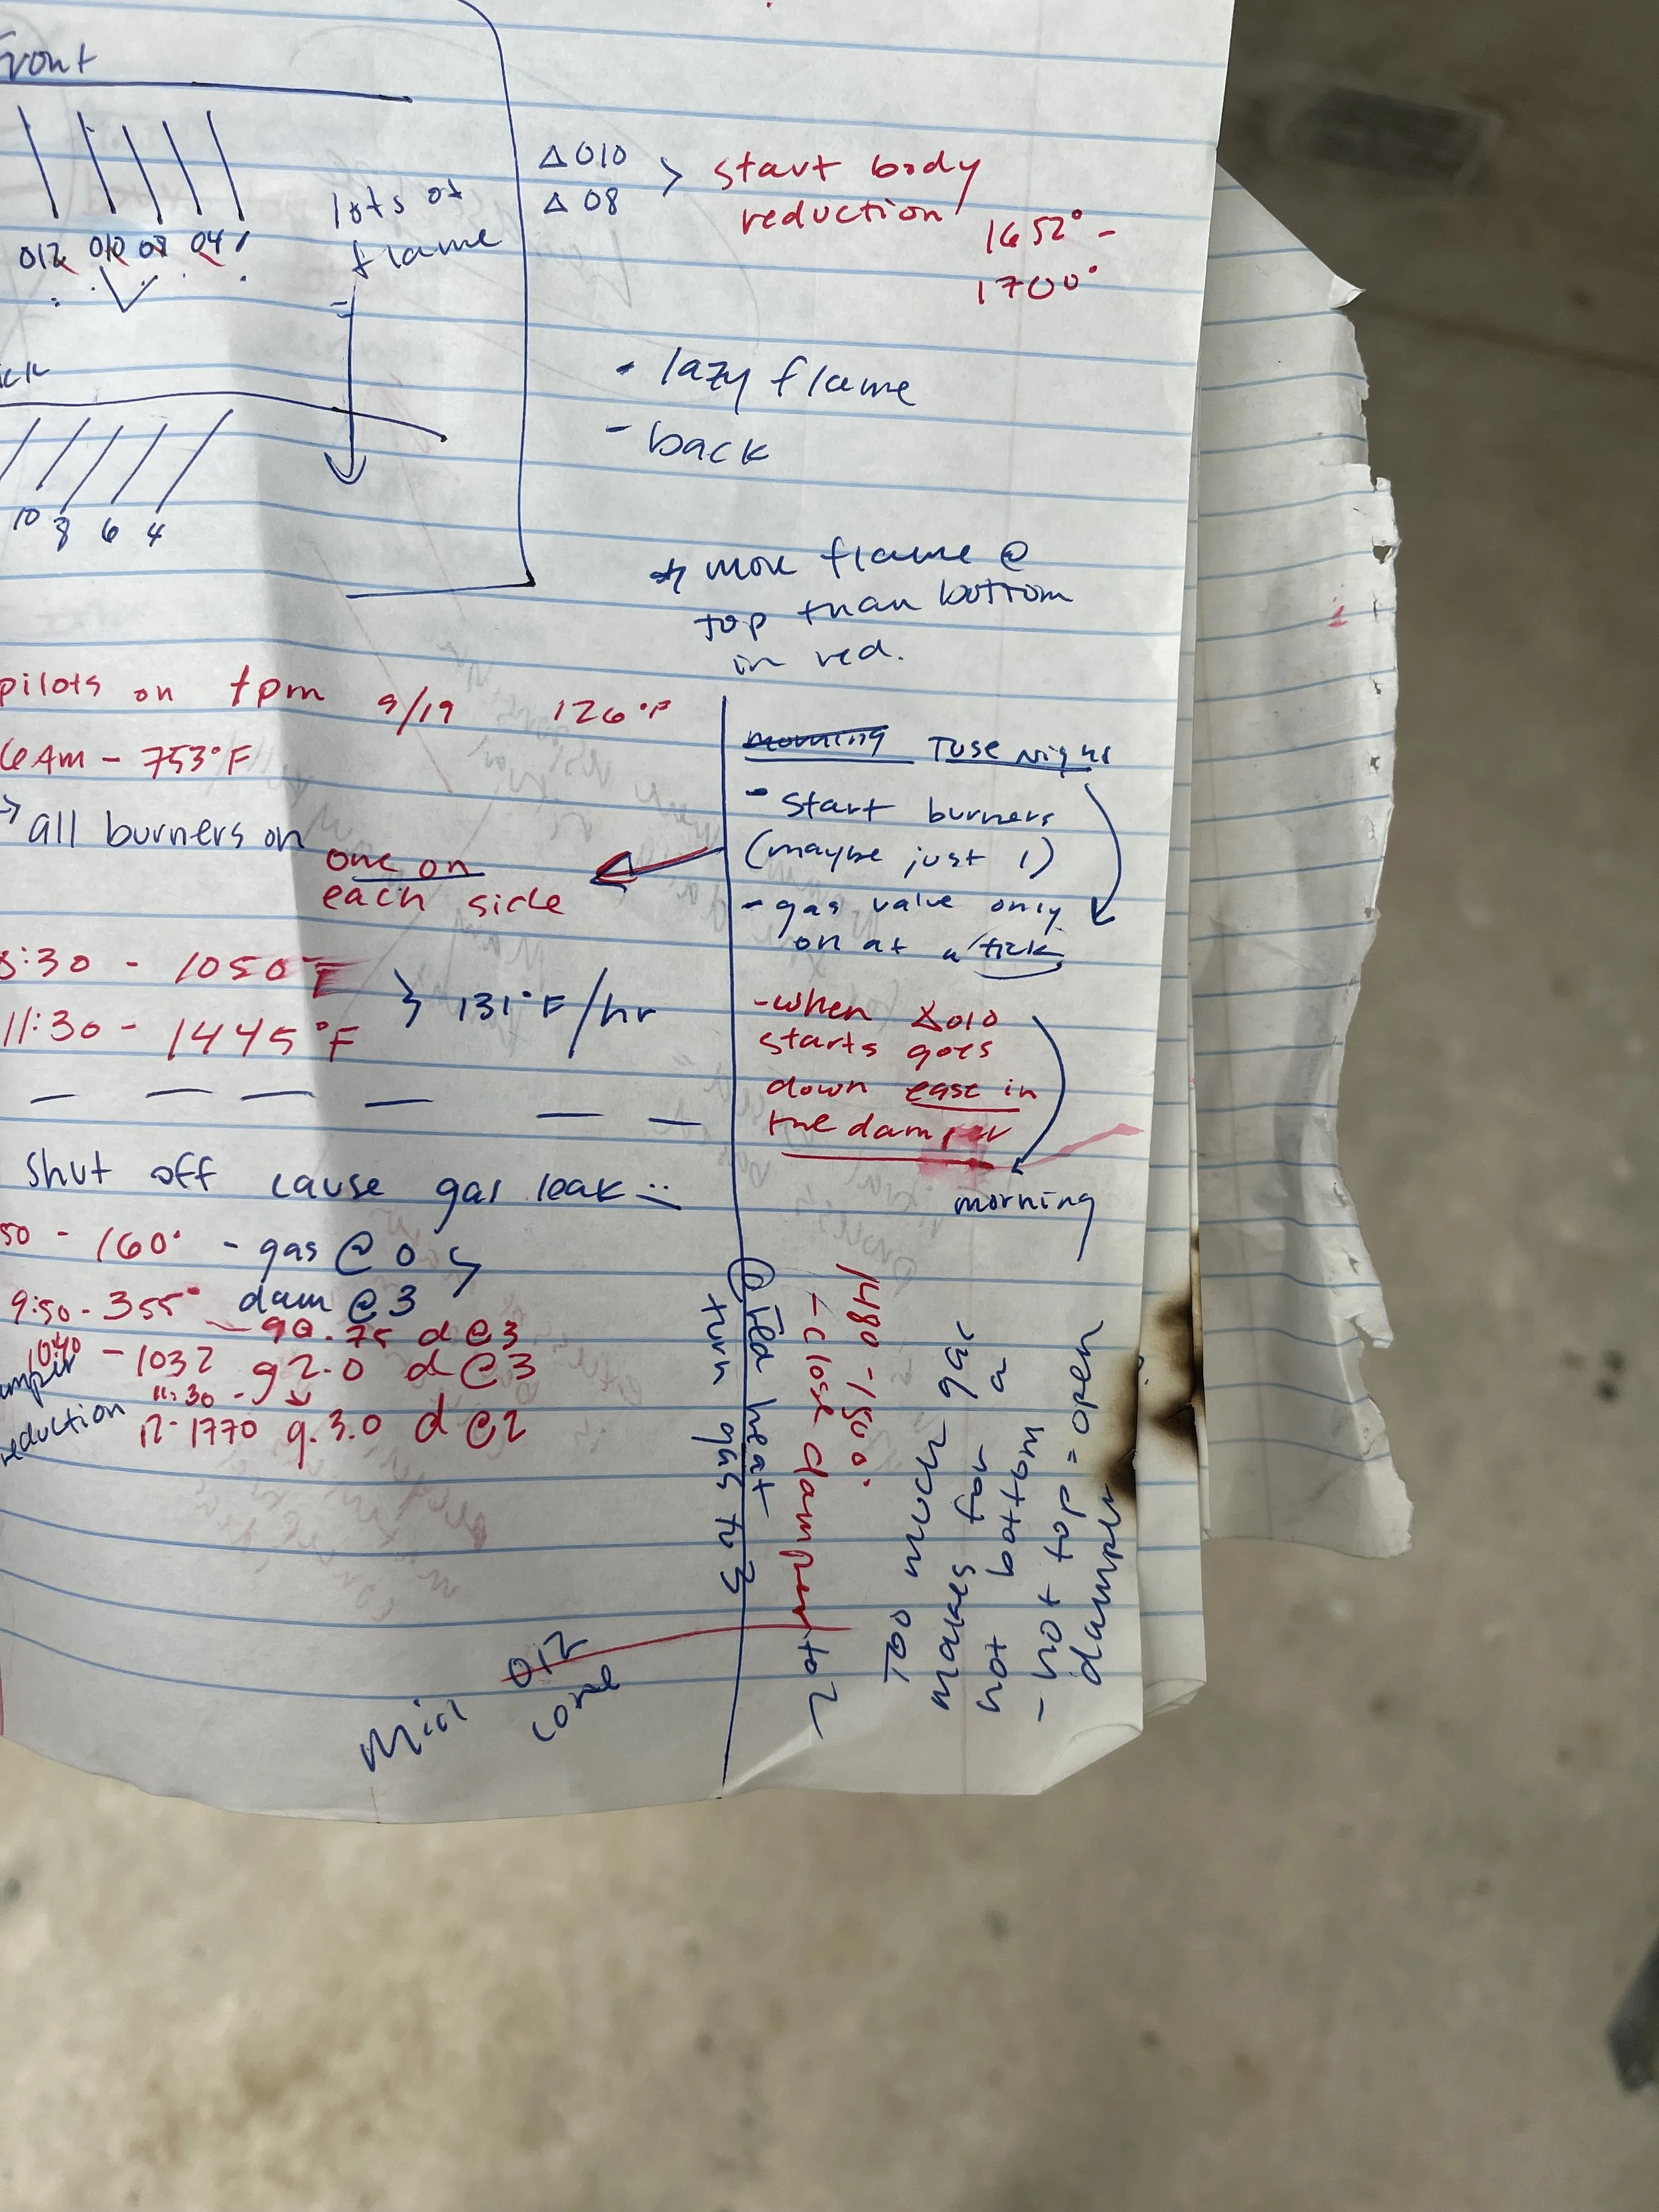 Front
012 010 08 04
lots of
flame
10 8 6 4
Δ 010
Δ 08
> start body
reduction
1652° -
1700°
- lazy flame
- back
* more flame @
top than bottom
in red.
pilots on 9/19 126°F
6Am - 753°F
→ all burners on
one on
each side
:30 - 1050°F
11:30 - 1445°F
} 131°F/hr
shut off cause gas leak
50 - 160° - gas @ 0
9:50 - 355° dam @ 3
.75 d@3
- 1032 g2.0 d@3
11:30
reduction 12 - 1770 g.3.0 d@2
morning Tuse Night
- Start burners
(maybe just 1)
- gas valve only
on at a tick
- when Δ010
starts goes
down ease in
the damper
morning
@ red heat
turn gas to
1480 - 1500°
- close damper
Too much gas
makes for a
hot bottom
- hot top = open
damper
Mini 012
cone